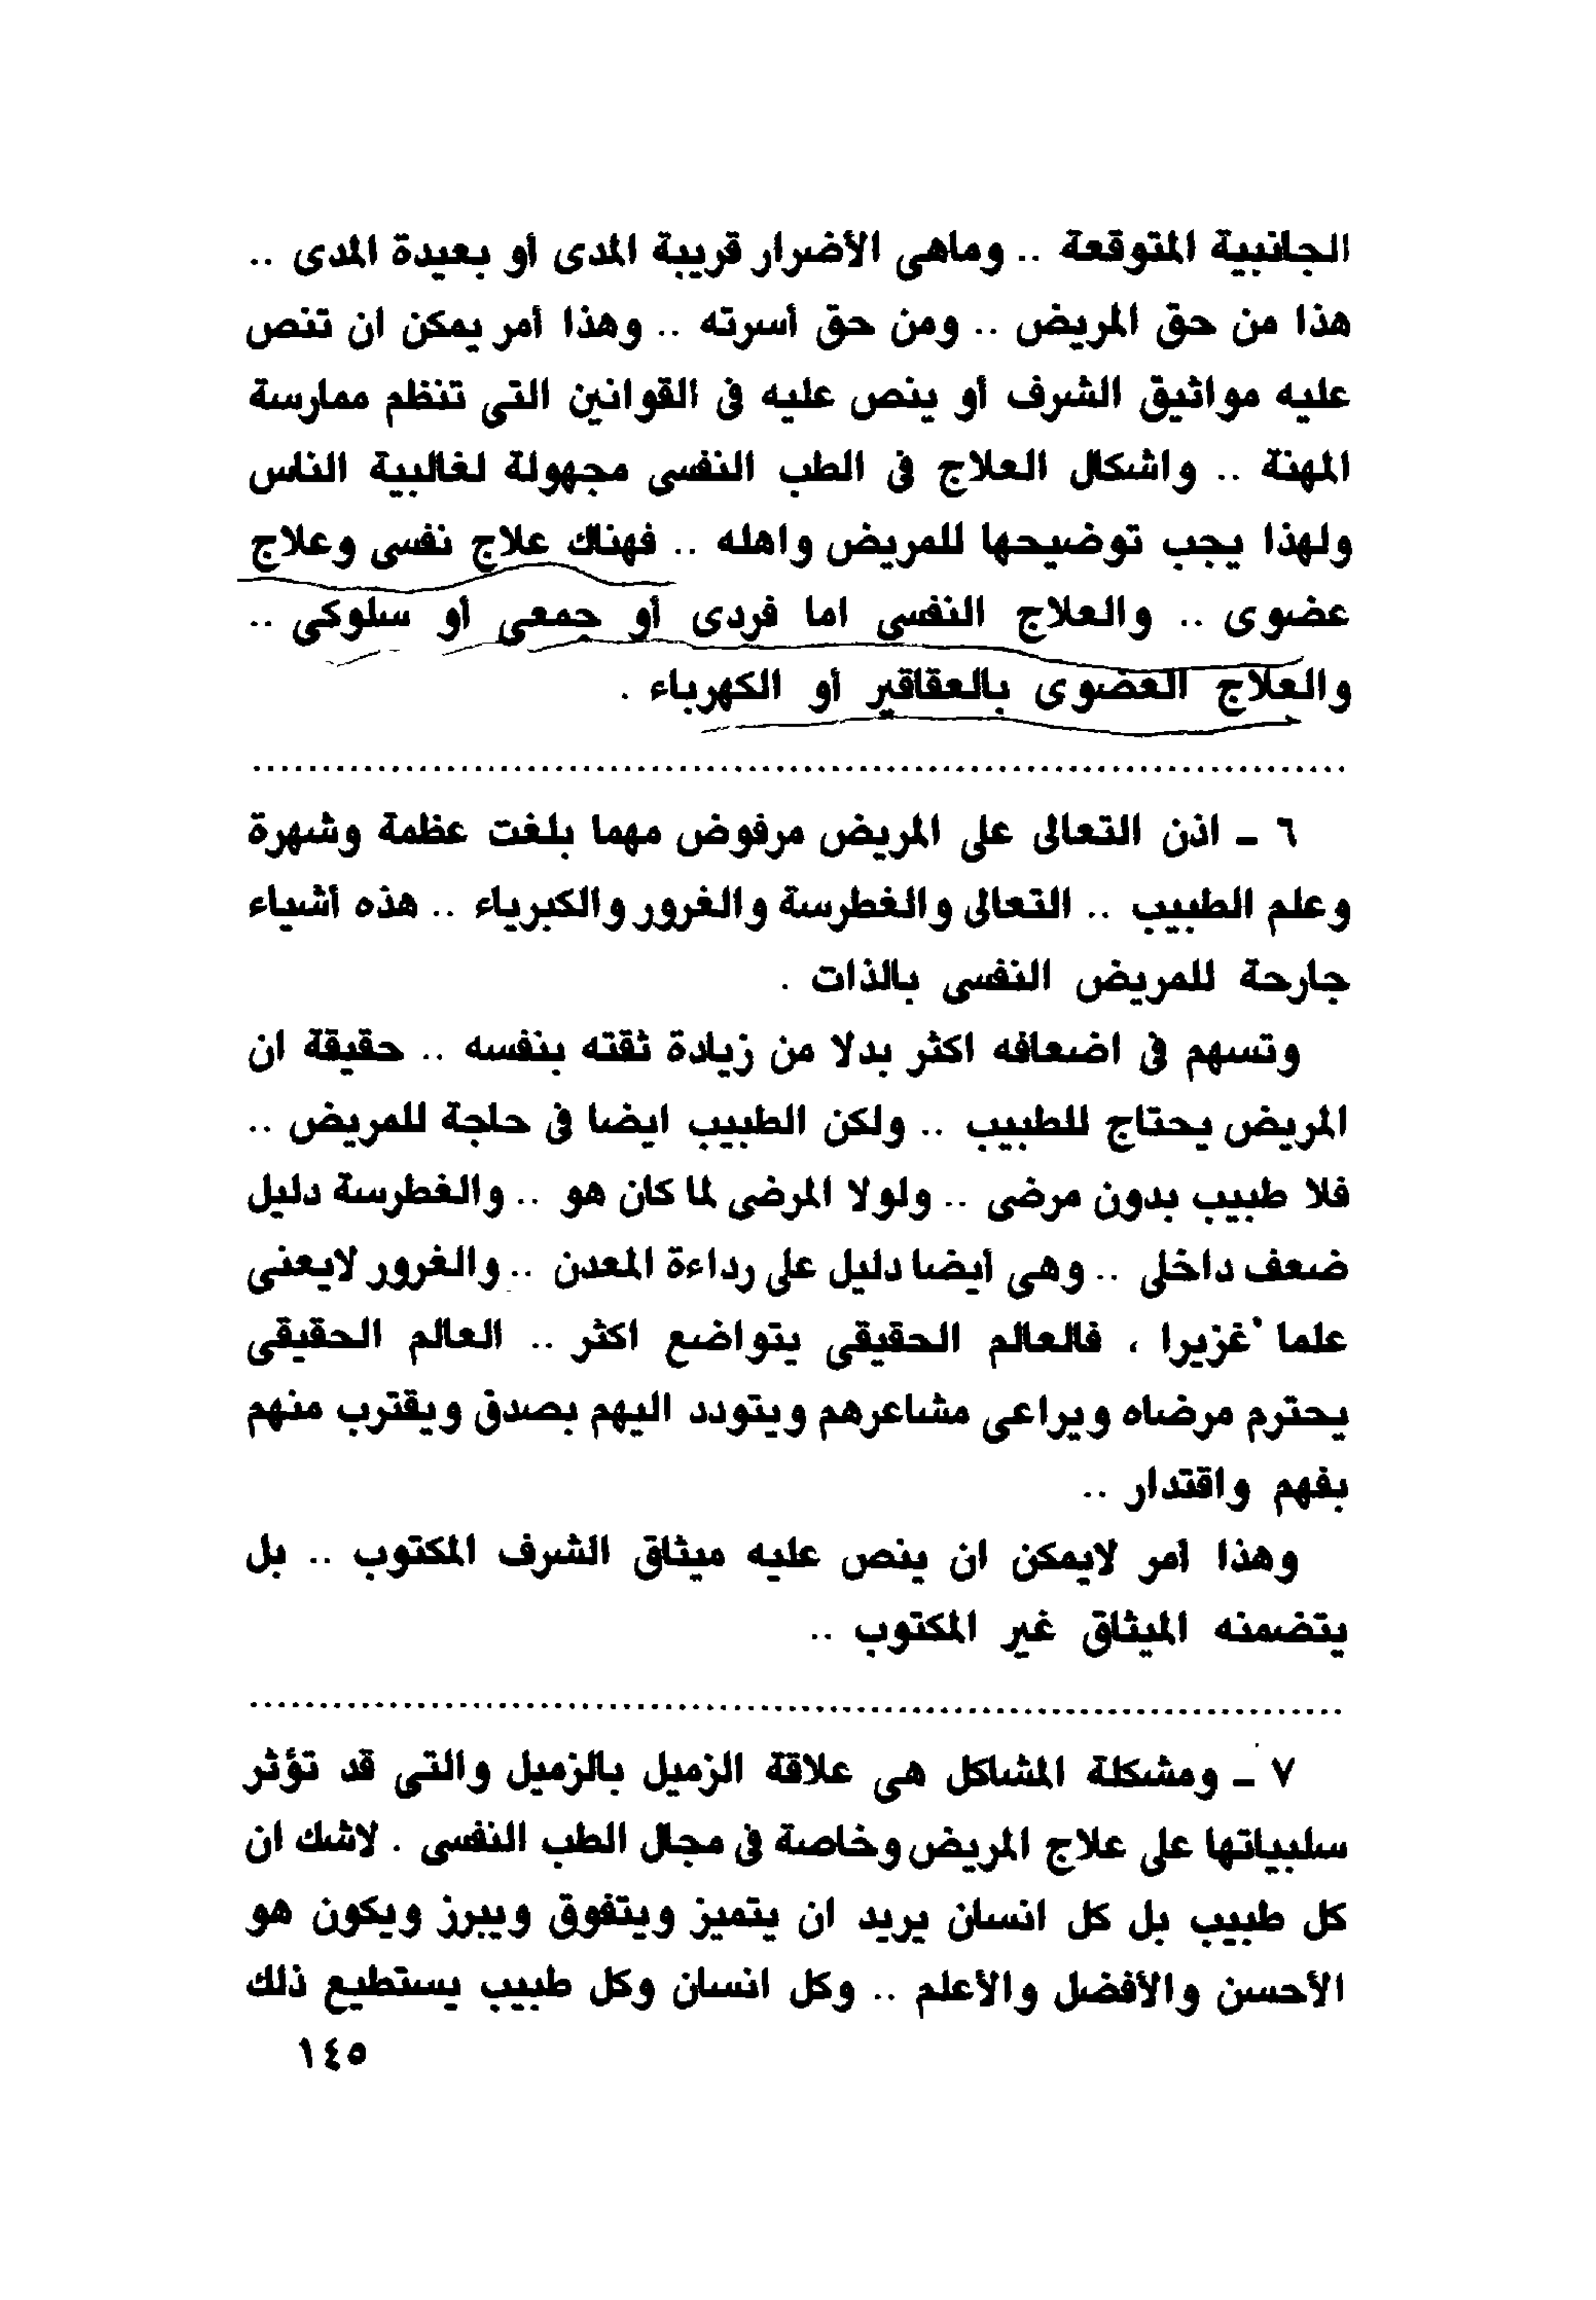 الجانبية المتوقعة .. وماهى الأضرار قريبة المدى أو بعيدة المدى ..
هذا من حق المريض .. ومن حق أسرته .. وهذا أمر يمكن ان تنص
عليه مواثيق الشرف أو ينص عليه فى القوانين التى تنظم ممارسة
المهنة .. واشكال العلاج فى الطب النفسى مجهولة لغالبية الناس
ولهذا يجب توضيحها للمريض واهله .. فهناك علاج نفسى وعلاج
عضوى .. والعلاج النفسى اما فردى أو جمعى أو سلوكى ..
والعلاج العضوى بالعقاقير أو الكهرباء .
................................................................................
٦ - اذن التعالى على المريض مرفوض مهما بلغت عظمة وشهرة
وعلم الطبيب .. التعالى والغطرسة والغرور والكبرياء .. هذه أشياء
جارحة للمريض النفسى بالذات .
وتسهم فى اضعافه اكثر بدلا من زيادة ثقته بنفسه .. حقيقة ان
المريض يحتاج للطبيب .. ولكن الطبيب ايضا فى حاجة للمريض ..
فلا طبيب بدون مرضى .. ولولا المرضى لما كان هو .. والغطرسة دليل
ضعف داخلى .. وهى أيضا دليل على رداءة المعدن .. والغرور لايعنى
علما غزيرا ، فالعالم الحقيقى يتواضع اكثر .. العالم الحقيقى
يحترم مرضاه ويراعى مشاعرهم ويتودد اليهم بصدق ويقترب منهم
بفهم واقتدار ..
وهذا أمر لايمكن ان ينص عليه ميثاق الشرف المكتوب .. بل
يتضمنه الميثاق غير المكتوب ..
................................................................................
٧ - ومشكلة المشاكل هى علاقة الزميل بالزميل والتى قد تؤثر
سلبياتها على علاج المريض وخاصة فى مجال الطب النفسى . لاشك ان
كل طبيب بل كل انسان يريد ان يتميز ويتفوق ويبرز ويكون هو
الأحسن والأفضل والأعلم .. وكل انسان وكل طبيب يستطيع ذلك
١٤٥